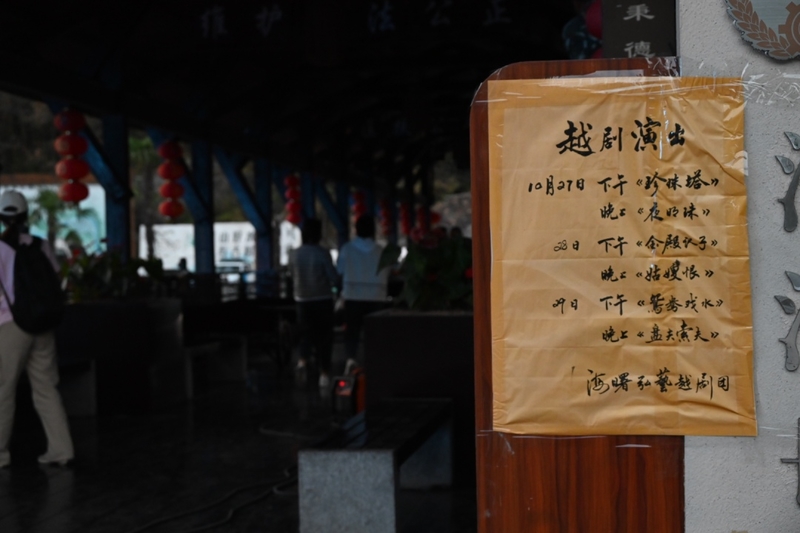 维护 法公正
秉德
越剧演出
10月27日 下午《珍珠塔》
晚上《夜明珠》
28日 下午《金殿认子》
晚上《姑嫂恨》
29日 下午《鸳鸯戏水》
晚上《盘夫索夫》
海曙弘藝越剧团